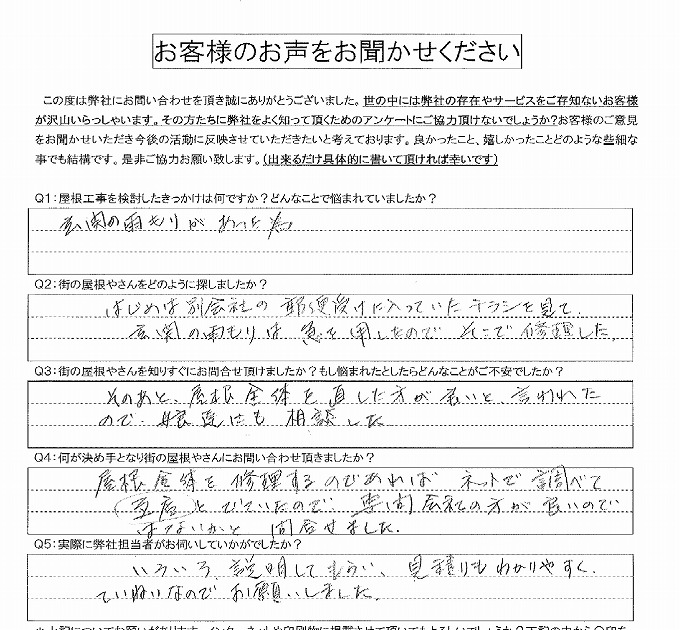 お客様のお声をお聞かせください
この度は弊社にお問い合わせを頂き誠にありがとうございました。世の中には弊社の存在やサービスをご存知ないお客様
が沢山いらっしゃいます。その方たちに弊社をよく知って頂くためのアンケートにご協力頂けないでしょうか?お客様のご意見
をお聞かせいただき今後の活動に反映させていただきたいと考えております。良かったこと、嬉しかったことどのような些細な
事でも結構です。是非ご協力お願い致します。(出来るだけ具体的に書いて頂ければ幸いです)
Q1:屋根工事を検討したきっかけは何ですか?どんなことで悩まれていましたか?
玄関の雨もりがあった為
Q2:街の屋根やさんをどのように探しましたか?
はじめは別会社の郵便受けに入っていたチラシを見て、
玄関の雨もりは急を用したのでそこで修理した。
Q3:街の屋根やさんを知りすぐにお問合せ頂けましたか?もし悩まれたとしたらどんなことがご不安でしたか?
そのあと、屋根全体を直した方が良いと、言われた
ので、娘達にも相談した
Q4:何が決め手となり街の屋根やさんにお問い合わせ頂きましたか?
屋根全体を修理するのであればネットで調べて
支店とでていたので、専門会社の方が良いので
はないかと問合せました。
Q5:実際に弊社担当者がお伺いしていかがでしたか?
いろいろ説明してもらい、見積りもわかりやすく、
ていねいなのでお願いしました。